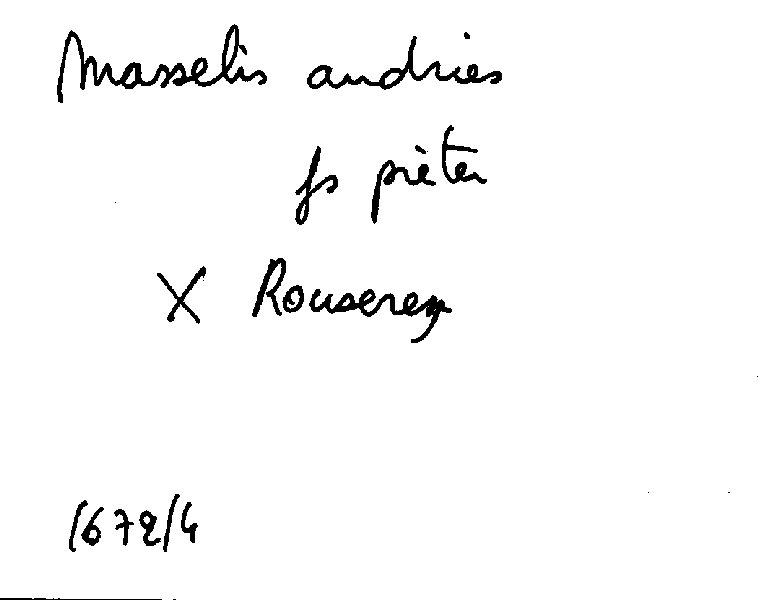 Masselis andries
fs pieter
X Rouserez
1672/4